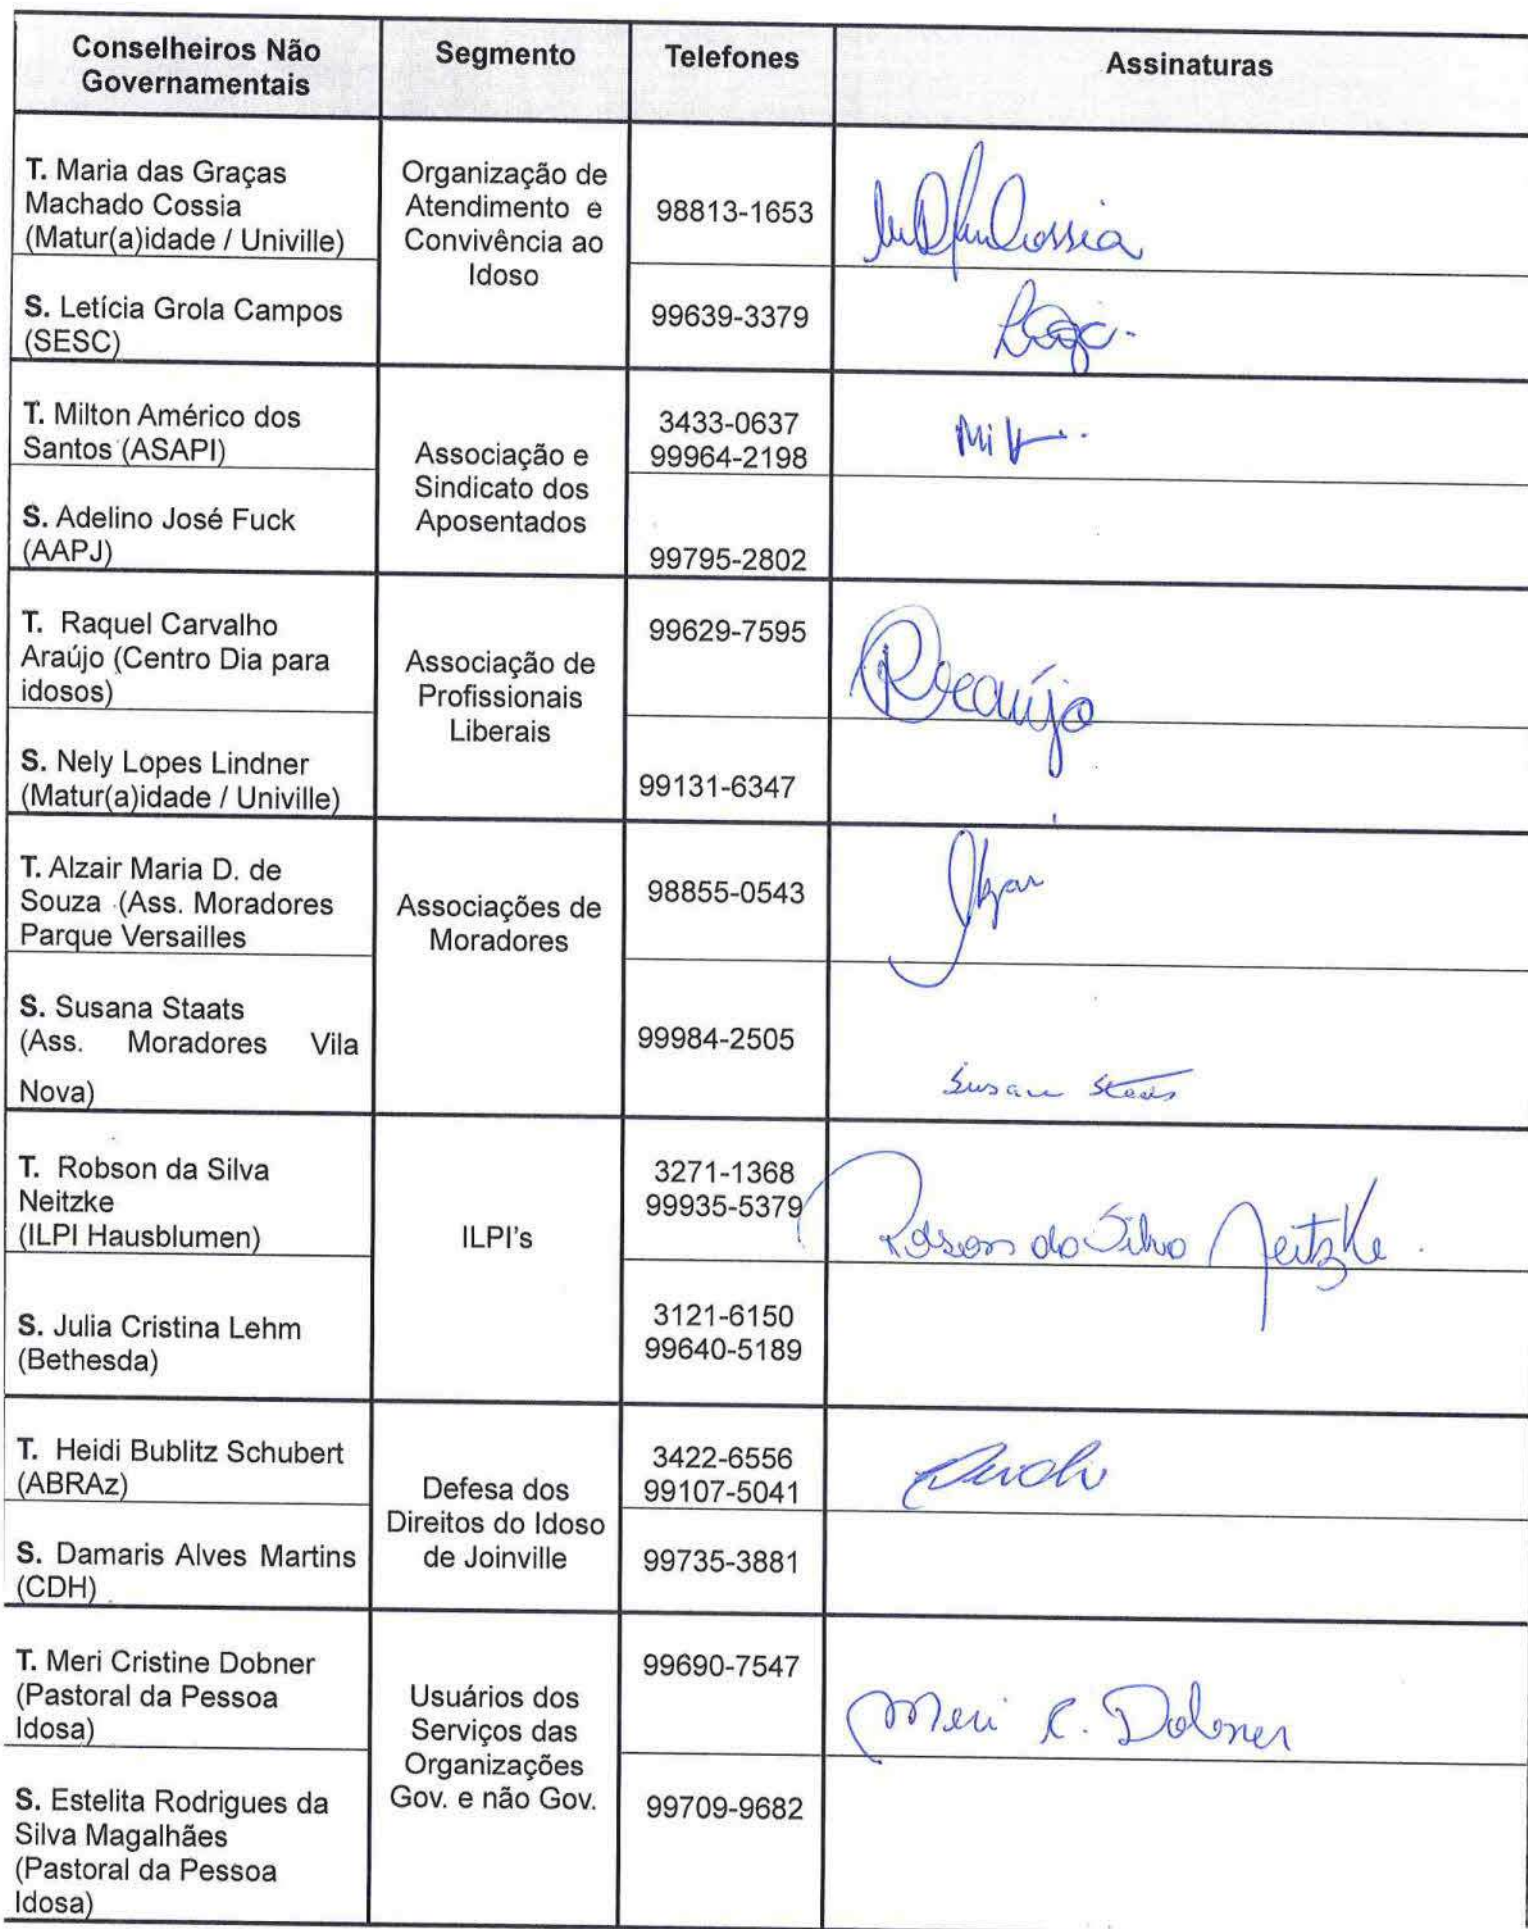 Conselheiros Não
Governamentais
Segmento
Telefones
Assinaturas
T. Maria das Graças
Machado Cossia
(Matur(a)idade / Univille)
Organização de
Atendimento e
Convivência ao
Idoso
98813-1653
Cossia
S. Letícia Grola Campos
(SESC)
99639-3379
T. Milton Américo dos
Santos (ASAPI)
Associação e
Sindicato dos
Aposentados
3433-0637
99964-2198
S. Adelino José Fuck
(AAPJ)
99795-2802
T. Raquel Carvalho
Araújo (Centro Dia para
idosos)
Associação de
Profissionais
Liberais
99629-7595
S. Nely Lopes Lindner
(Matur(a)idade / Univille)
99131-6347
T. Alzair Maria D. de
Souza (Ass. Moradores
Parque Versailles
Associações de
Moradores
98855-0543
S. Susana Staats
(Ass. Moradores Vila
Nova)
99984-2505
T. Robson da Silva
Neitzke
(ILPI Hausblumen)
ILPI's
3271-1368
99935-5379
Robson da Silva Neitzke
S. Julia Cristina Lehm
(Bethesda)
3121-6150
99640-5189
T. Heidi Bublitz Schubert
(ABRAz)
Defesa dos
Direitos do Idoso
de Joinville
3422-6556
99107-5041
S. Damaris Alves Martins
(CDH)
99735-3881
T. Meri Cristine Dobner
(Pastoral da Pessoa
Idosa)
Usuários dos
Serviços das
Organizações
Gov. e não Gov.
99690-7547
Meri C. Dobner
S. Estelita Rodrigues da
Silva Magalhães
(Pastoral da Pessoa
Idosa)
99709-9682